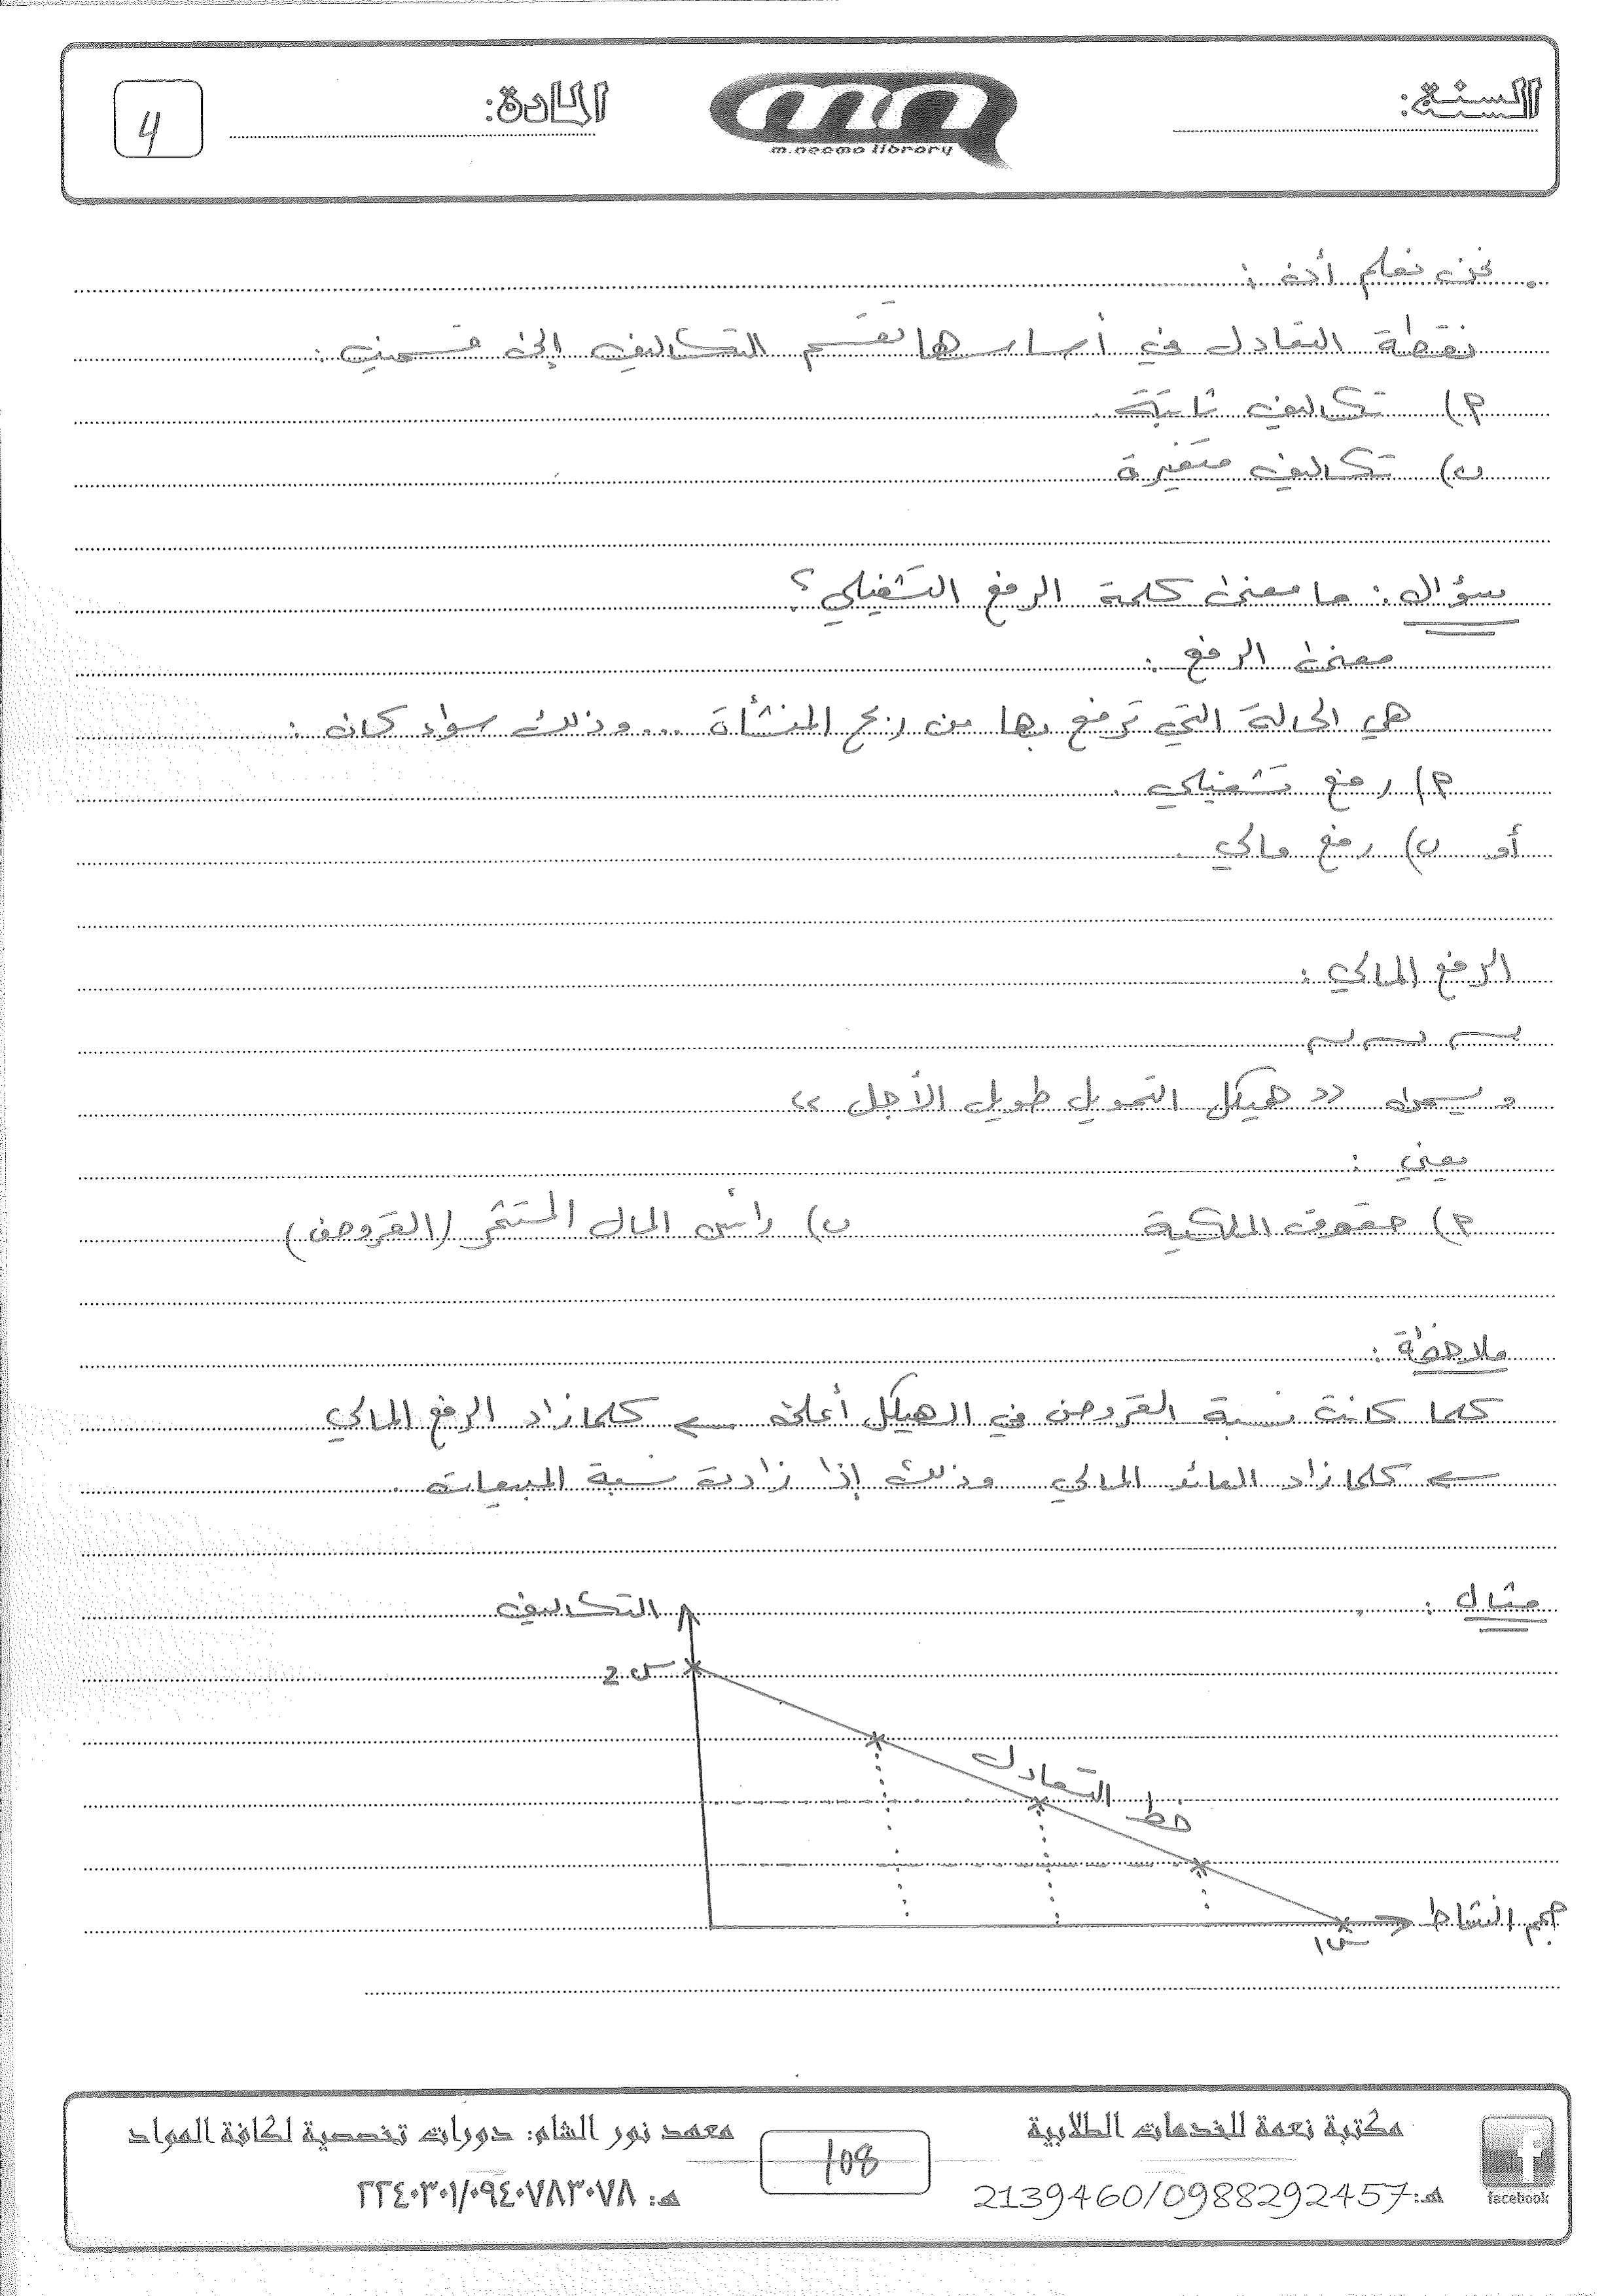 السنة:
mn
m.neama library
المادة:
4
نحن نعلم أن :
نقطة التعادل في أساسها تقسم التكاليف إلى قسمين :
P) تكاليف ثابتة .
ب) تكاليف متغيرة
سؤال : ما معنى كلمة الرفع التشغيلي ؟
معنى الرفع :
هي الحالة التي ترفع بها من ربح المنشأة ... وذلك سواء كان :
P) رفع تشغيلي .
أو ب) رفع مالي .
الرفع المالي :
ويسمى << هيكل التمويل طويل الأجل >>
يعني :
P) حقوق الملكية ب) رأس المال المستثمر (القروض)
ملاحظة :
كلما كانت نسبة القروض في الهيكل أعلى ← كلما زاد الرفع المالي
← كلما زاد العائد المالي وذلك إذا زادت نسبة المبيعات .
مثال :
التكاليف
س2
خط التعادل
حجم النشاط
س1
مكتبة نعمة للخدمات الطلابية
هـ: 2139460/0988292457
108
معهد نور الشام: دورات تخصصية لكافة المواد
هـ: ٢٢٤٠٣٠١/٠٩٤٠٧٨٣٠٧٨
facebook